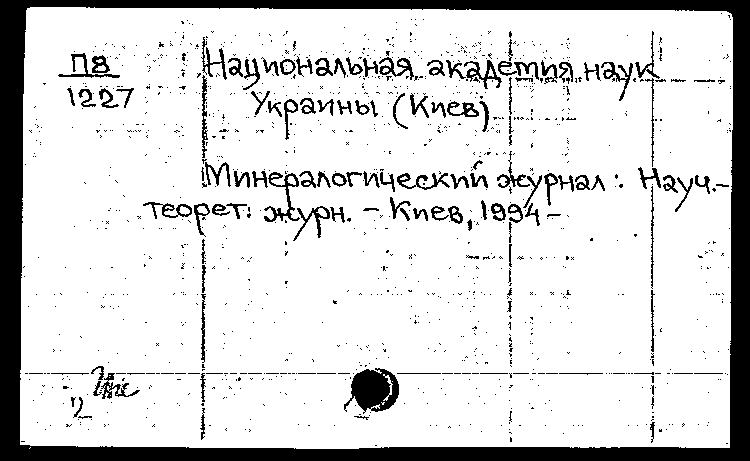 П8
1227
Национальная академия наук
Украины (Киев)
Минералогический журнал : Науч.-
теорет. журн. – Киев, 1994 –